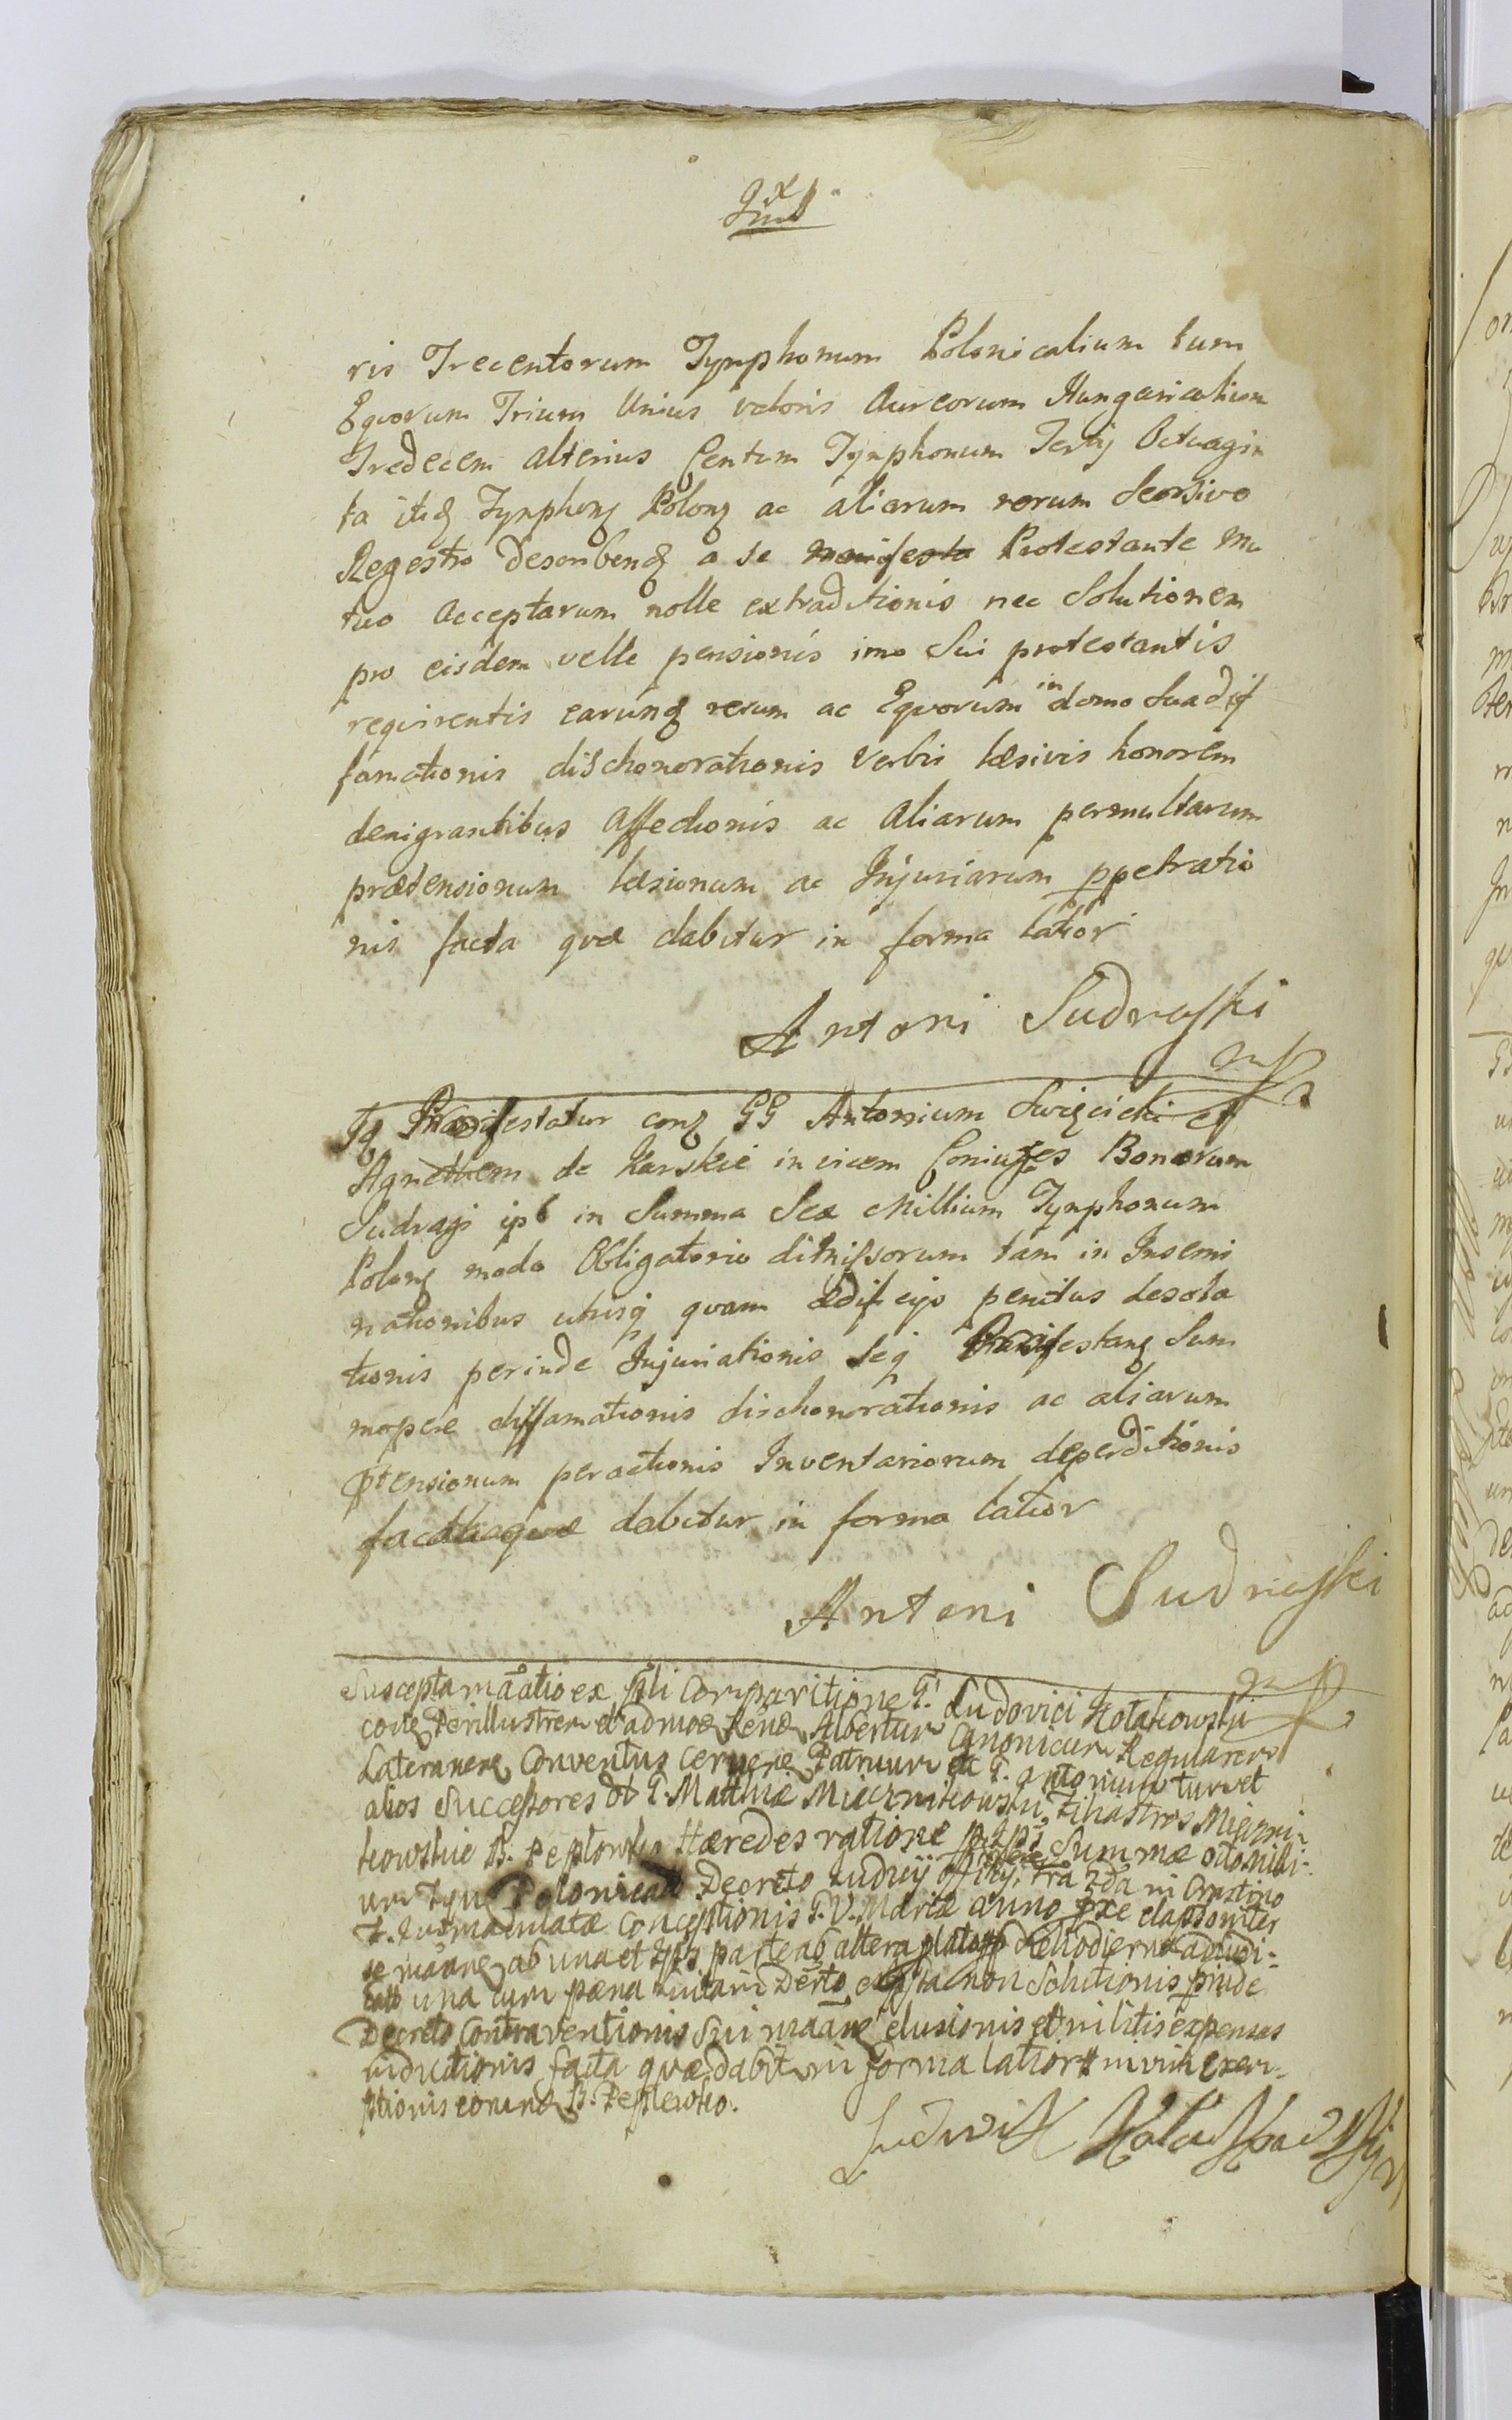 ris Trecentorum Tynphonum Polonicalium tum
Equorum Trium Unius valoris Aureorum Hungaricalium
Tredecem alterius Centum Tynphonum Tertij Octuagin
ta itq Tynphonq Polonq ac aliarum rerum Seorsivo
Regestro describendq a se manifesta Protestante Mu
tuo acceptarum nolle extraditionis nec Solutionem
pro eisdem velle pensionis imo Sui protestantis
requirentis earunq rerum ac Equorum in domo Sua dif
famationis dischonorationis Verbis læsivis honorem
denigrantibus affectionis ac aliarum permultarum
prætensionum læsionum ac Injuriarum ppetratio
nis facta quæ dabitur in forma latior
Antoni Sudraski
Manifestatur conq GG Antonium Swięcicki et
Agnethem de Karskie invicem Coniuges Bonorum
Sudragi in Summa Sex Millium Tynphonum
Polonq modo Obligatorio dimissorum tam in Insemi
nationibus utriusq quam ædificijs penitus desola
tionis perinde Injuriationis Seq Manifestanq Sum
mopere diffamationis dischonorationis ac aliarum
ptensionum peractionis Inventariorum deperditionis
facta quæ dabitur in forma latior
Antoni Sudraski
Suscepta maatio ex pli Comparitione G. Ludovici Kołakowski
conq Perillustrem et admod Rendq Albertum Canonicum Regularem
Lateranenq Conventus Patruum et G. Antonium tum et
alios Successores G. Matthiæ Miecznikowski, Filiastros Mieczni-
kowskie B. Hæredes ratione Summæ octo milli-
um Tyn Polonical Decreto Judicij in Crastino
F. Immaculatæ Conceptionis B. V. Mariæ anno pxe elapso inter
se maane ab una et parte ab altera hodierna adiudi-
cato una cum pæna non Solutionis pinde
Decreto Contraventionis Sui maane elusionis et in litis expensas
inductionis facta quæ dabit in forma latior in vim exem-
ptionis eorunq B.
Ludwik Kołakowski